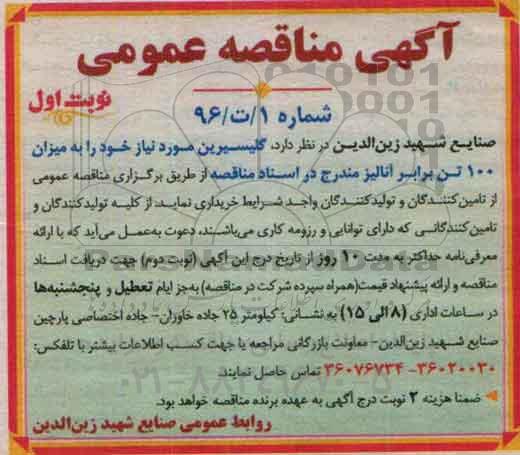 آگهی مناقصه عمومی
نوبت اول
شماره ۱/ت/۹۶
صنایع شهید زین‌الدین در نظر دارد، گلیسیرین مورد نیاز خود را به میزان
۱۰۰ تن برابر آنالیز مندرج در اسناد مناقصه از طریق برگزاری مناقصه عمومی
از تامین‌کنندگان و تولیدکنندگان واجد شرایط خریداری نماید: از کلیه تولیدکنندگان و
تامین‌کنندگانی که دارای توانایی و رزومه کاری می‌باشند، دعوت به‌عمل می‌آید که با ارائه
معرفی‌نامه حداکثر به مدت ۱۰ روز از تاریخ درج این آگهی (نوبت دوم) جهت دریافت اسناد
مناقصه و ارائه پیشنهاد قیمت(همراه سپرده شرکت در مناقصه) به‌جز ایام تعطیل و پنجشنبه‌ها
در ساعات اداری (۸ الی ۱۵) به نشانی: کیلومتر ۲۵ جاده خاوران- جاده اختصاصی پارچین
صنایع شهید زین‌الدین- معاونت بازرگانی مراجعه یا جهت کسب اطلاعات بیشتر با تلفکس:
۳۶۰۲۰۰۳۰- ۳۶۰۷۶۷۳۴ تماس حاصل نمایند.
ضمنا هزینه ۲ نوبت درج آگهی به عهده برنده مناقصه خواهد بود.
روابط عمومی صنایع شهید زین‌الدین